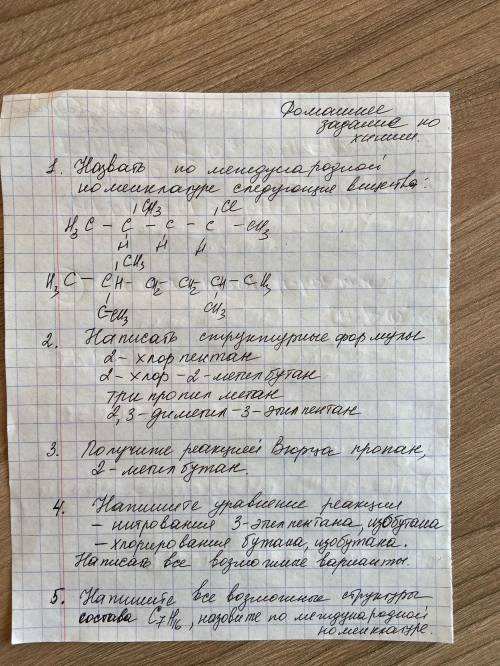 Домашнее
задание по
химии.
1. Назвать по международной
номенклатуре следующие вещества:
CH3 Cl
H3C - C - C - C - CH3
H H H
CH3
H3C - CH - CH2 CH2 CH - CH3
C CH3 CH3
2. Написать структурные формулы
2-хлорпентан
2-хлор-2-метилбутан
три пропил метан
2,3-диметил-3-этилпентан
3. Получите реакцией Вюрца пропан,
2-метилбутан.
4. Напишите уравнение реакции
- нитрования 3-этилпентана, изобутана
- хлорирования бутана, изобутана.
Написать все возможные варианты.
5. Напишите все возможные структуры
состава C7H16, назовите по международной
номенклатуре.